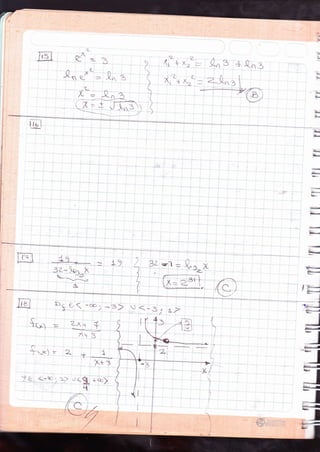 15
e^x² = 3
ln e^x² = ln 3
x² = ln 3
x = ± √ln 3
x₁² + x₂² = ln 3 + ln 3
x₁² + x₂² = 2 ln 3
B
16
17
19 / (32 - log₂ x) = 19
1
32 - 1 = log₂ x
x = 2³¹
C
18
x ∈ <-∞; -3> ∪ <-3; 1>
f(x) = (2x + 7) / (x + 3)
f(x) = 2 + 1 / (x + 3)
y ∈ <-∞; 2> ∪ <9/4; +∞>
C
9/4
2
-3
x